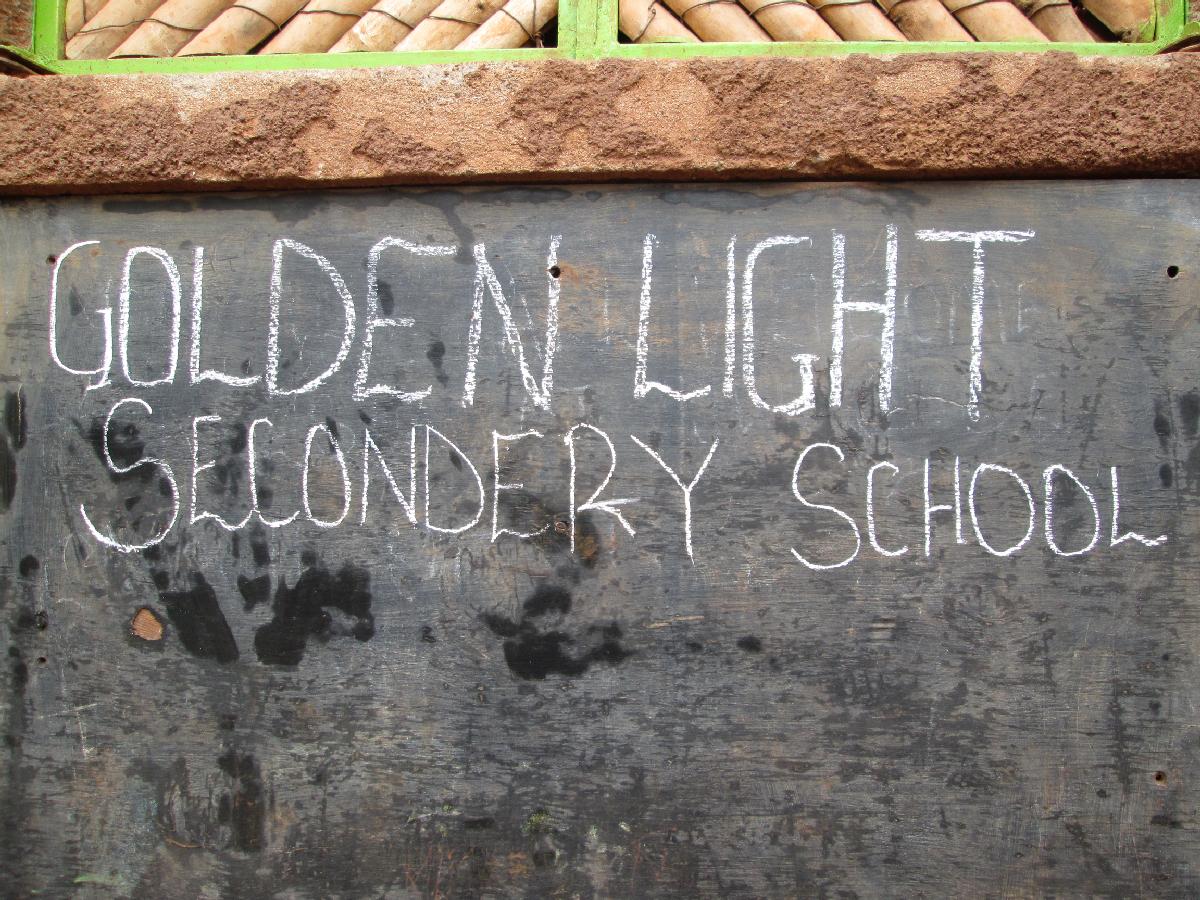 GOLDEN LIGHT
SECONDERY SCHOOL